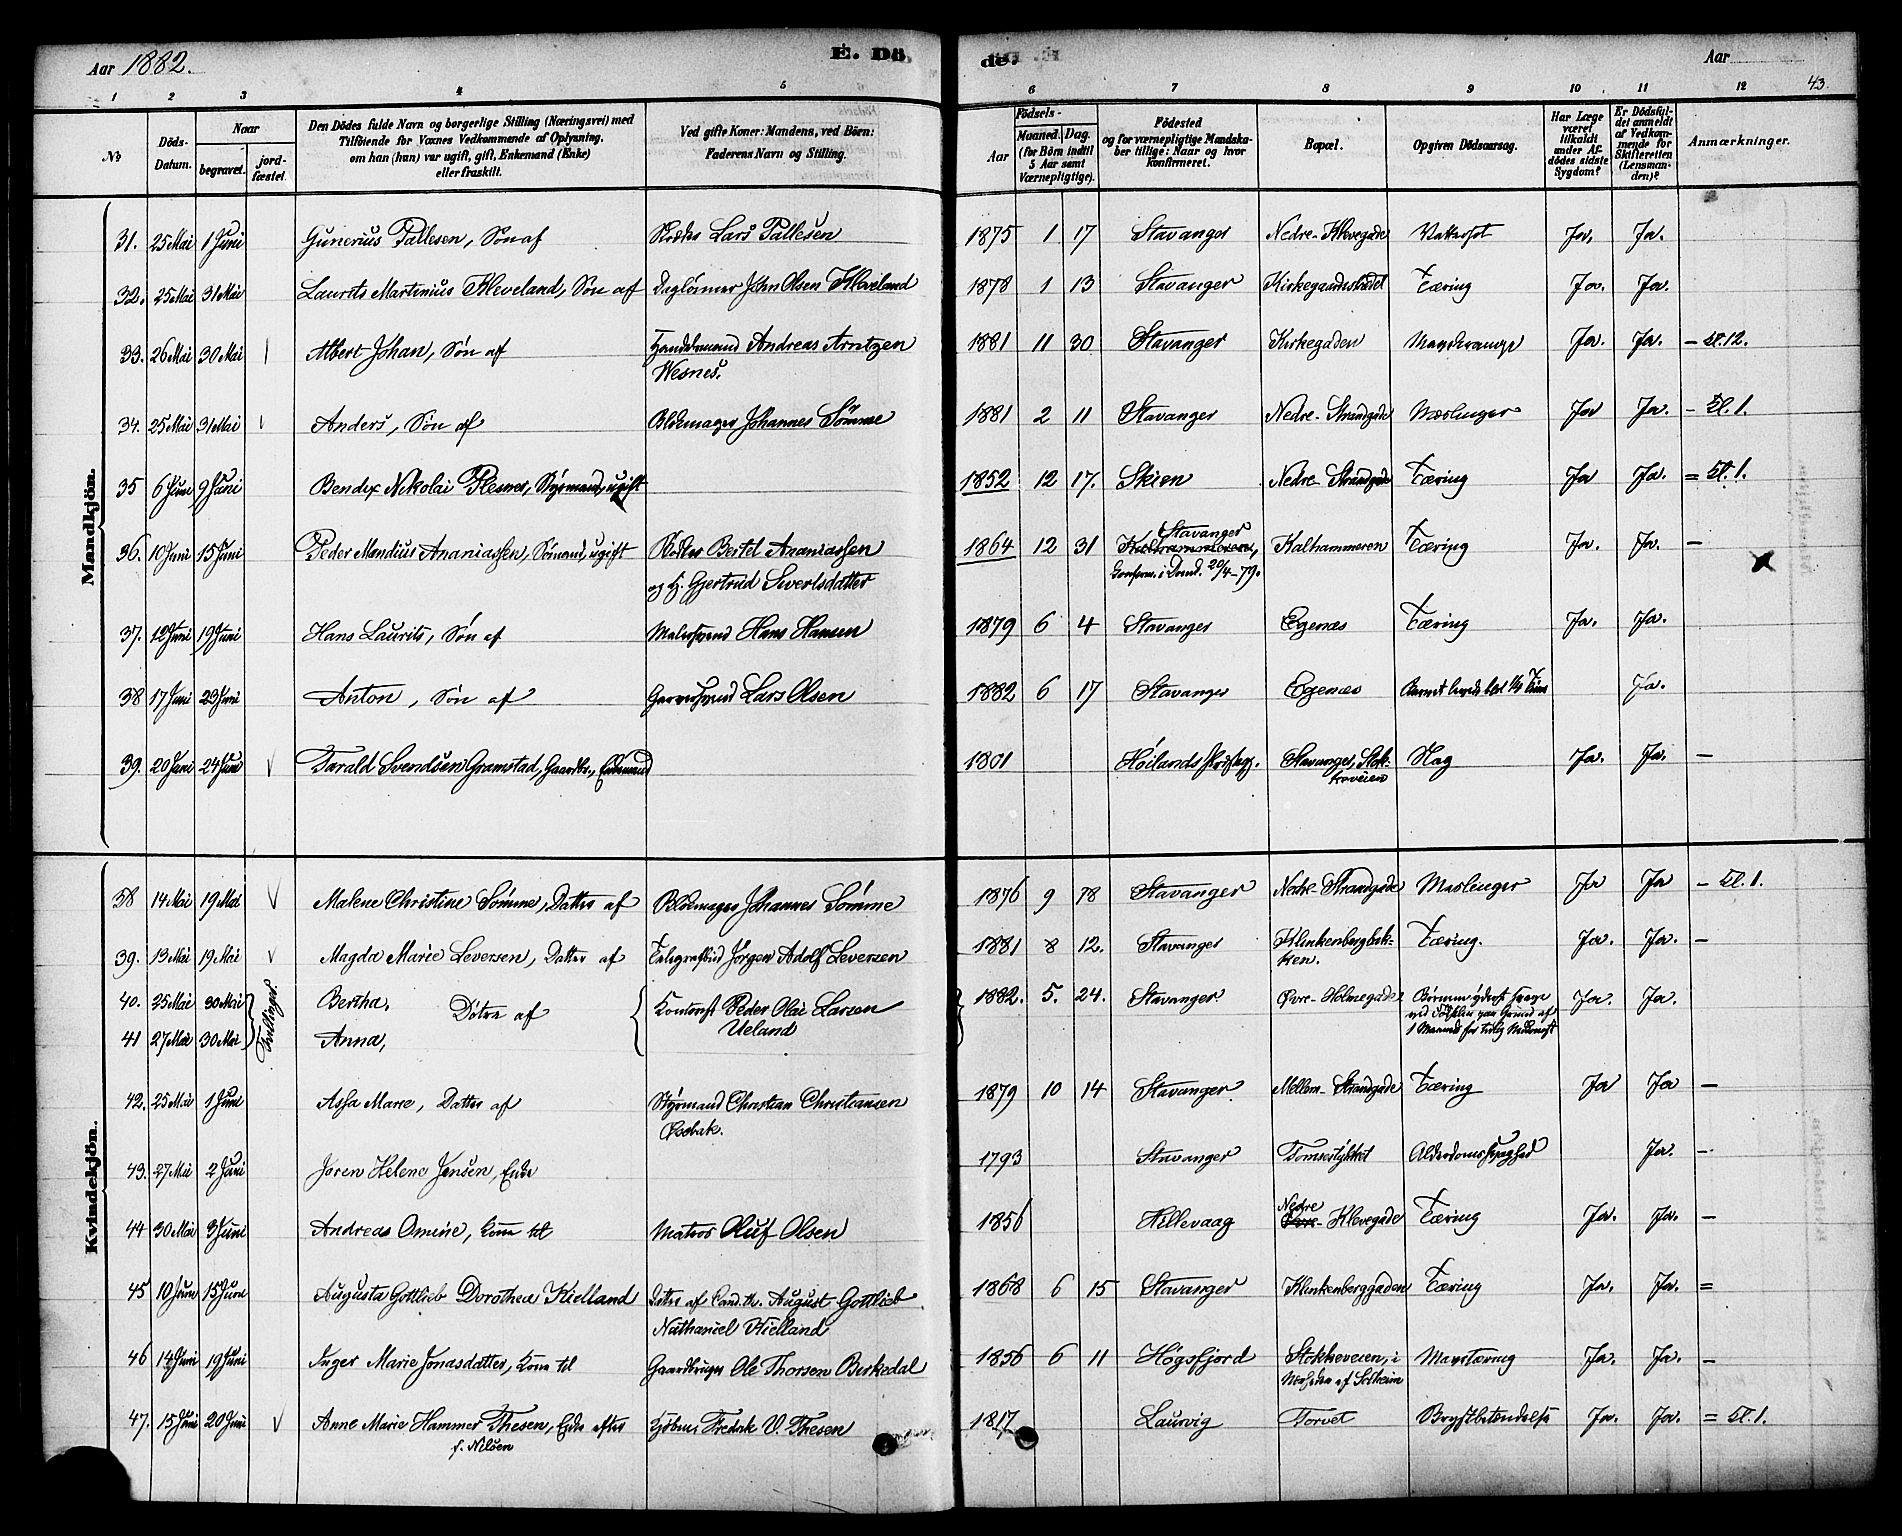 Aar 1882.
E. Dö
de.
Aar
43.
1 2 3 4 5 6 7 8 9 10 11 12
No
Döds-Datum.
Naar
begravet.
jord-fæstet.
Den Dödes fulde Navn og borgerlige Stilling (Næringsvei) med
Tilföiende for Voxnes Vedkommende af Oplysning,
om han (hun) var ugift, gift, Enkemand (Enke)
eller fraskilt.
Ved gifte Koner: Mandens, ved Börn:
Faderens Navn og Stilling.
Födsels-
Aar
Maaned. Dag.
(for Börn indtil
5 Aar samt
Værnepligtige).
Födested
og for værnepligtige Mandska-
ber tillige: Naar og hvor
konfirmeret.
Bopæl.
Opgiven Dödsaarsag.
Har Læge
været
tilkaldt
under Af-
dödes sidste
Sygdom?
Er Dödsfal-
det anmeldt
af Vedkom-
mende for
Skifteretten
(Lensman-
den)?
Anmærkninger.
Mandkjön.
31. 25 Mai 1 Juni Gunerius Pallesen, Søn af Lars Pallesen 1875 1 17 Stavanger Nedre-Klevegade Ja, Ja.
32. 25 Mai 31 Mai Laurits Martinius Kleveland, Søn af Daglønner John Olsen Kleveland 1878 1 13 Stavanger Kirkegaardsstrædet Tæring Ja. Ja.
33. 26 Mai 30 Mai Albert Johan, Søn af Handelsmand Andreas Arntzen 1881 11 30 Stavanger Kirkegaden Ja. Ja. - Kl. 12.
Wesnes.
34. 25 Mai 31 Mai Anders, Søn af Blokmager Johannes Sømme 1881 2 11 Stavanger Nedre-Strandgade Mæslinger Ja Ja. - Kl. 1.
35 6 Juni 9 Juni Bendix Nikolai Plesner, Styrmand, ugift 1852 12 17. Skien Nedre-Strandgade Tæring Ja Ja. = Kl. 1.
Stavanger
36. 10 Juni 15 Juni Peder Mandius Ananiassen, Sømand, ugift Bertel Ananiassen 1864 12 31 Kalhammeren, Kalhammeren Tæring Ja. Ja. -
og H. Gjertrud Sivertsdatter Confirm. i Domk. 20/4-79.
37. 12 Juni 19 Juni Hans Laurits, Søn af Malersvend Hans Hansen 1879 6 4 Stavanger Egenæs Tæring Ja. Ja.
38 17 Juni 23 Juni Anton, Søn af Garversvend Lars Olsen 1882 6 17 Stavanger Egenæs Barnet levede blot 1/2 Time Ja.
39. 20 Juni 24 Juni Tarald Svendsen Gramstad, Gaardbr., Enkemand 1801 Høilands Præstegj. Stavanger, Stok- Slag Ja. Ja. -
kaveien
Kvindekjön.
38 14 Mai 19 Mai Malene Christine Sømme, Datter af Blokmager Johannes Sømme 1876 9 18 Stavanger Nedre-Strandgade Mæslinger Ja Ja - Kl. 1.
39. 13 Mai 19 Mai Magda Marie Leversen, Datter af Telegrafbud Jørgen Adolf Leversen 1881 8 12. Stavanger Klinkenbergbak- Tæring. Ja. Ja. -
ken.
40. 25 Mai 30 Mai Bertha, Døtre af Kontorist Peder Olai Larsen 1882. 5. 24. Stavanger Øvre-Holmegade Børnene yderst svage Ja. Ja.
Tvillinger. Ueland ved Fødselen paa Grund af
41 27 Mai 30 Mai Anna, 1 Maaned for tidlig Nedkomst
42. 25 Mai 1 Juni Assa Marie, Datter af Styrmand Christian Christiansen 1879 10 14 Stavanger Mellem-Strandgade Tæring Ja Ja -
43. 27 Mai 2 Juni Joren Helene Jensen, Enke 1793 Stavanger Tomsestykket Alderdomssvaghed Ja. -
Nedre
44 30 Mai 3 Juni Andreas Omine, Kone til Matros Oluf Olsen 1856 Hillevaag Øvre-Klevegade Tæring Ja. Ja. -
45 10 Juni 15 Juni Augusta Gottlieb Dorothea Kielland Datter af Cand. th. August Gottlieb 1868 6 15 Stavanger Klinkenberggaden Tæring Ja. Ja. =
Nathaniel Kielland
46 14 Juni 19 Juni Inger Marie Jonasdatter, Kone til Gaardbruger Ole Thorsen Birkedal 1856 6 11 Høgsfjord Stokkeveien, i Mavetæring Ja. Ja. -
af Solheim
47. 15 Juni 20 Juni Anne Marie Hammer Thesen, Enke efter Kjøbm. Fredrik V. Thesen 1817 Laurvig Torvet Brystbetændelse Ja. Ja. = Kl. 1.
f. Nilsen